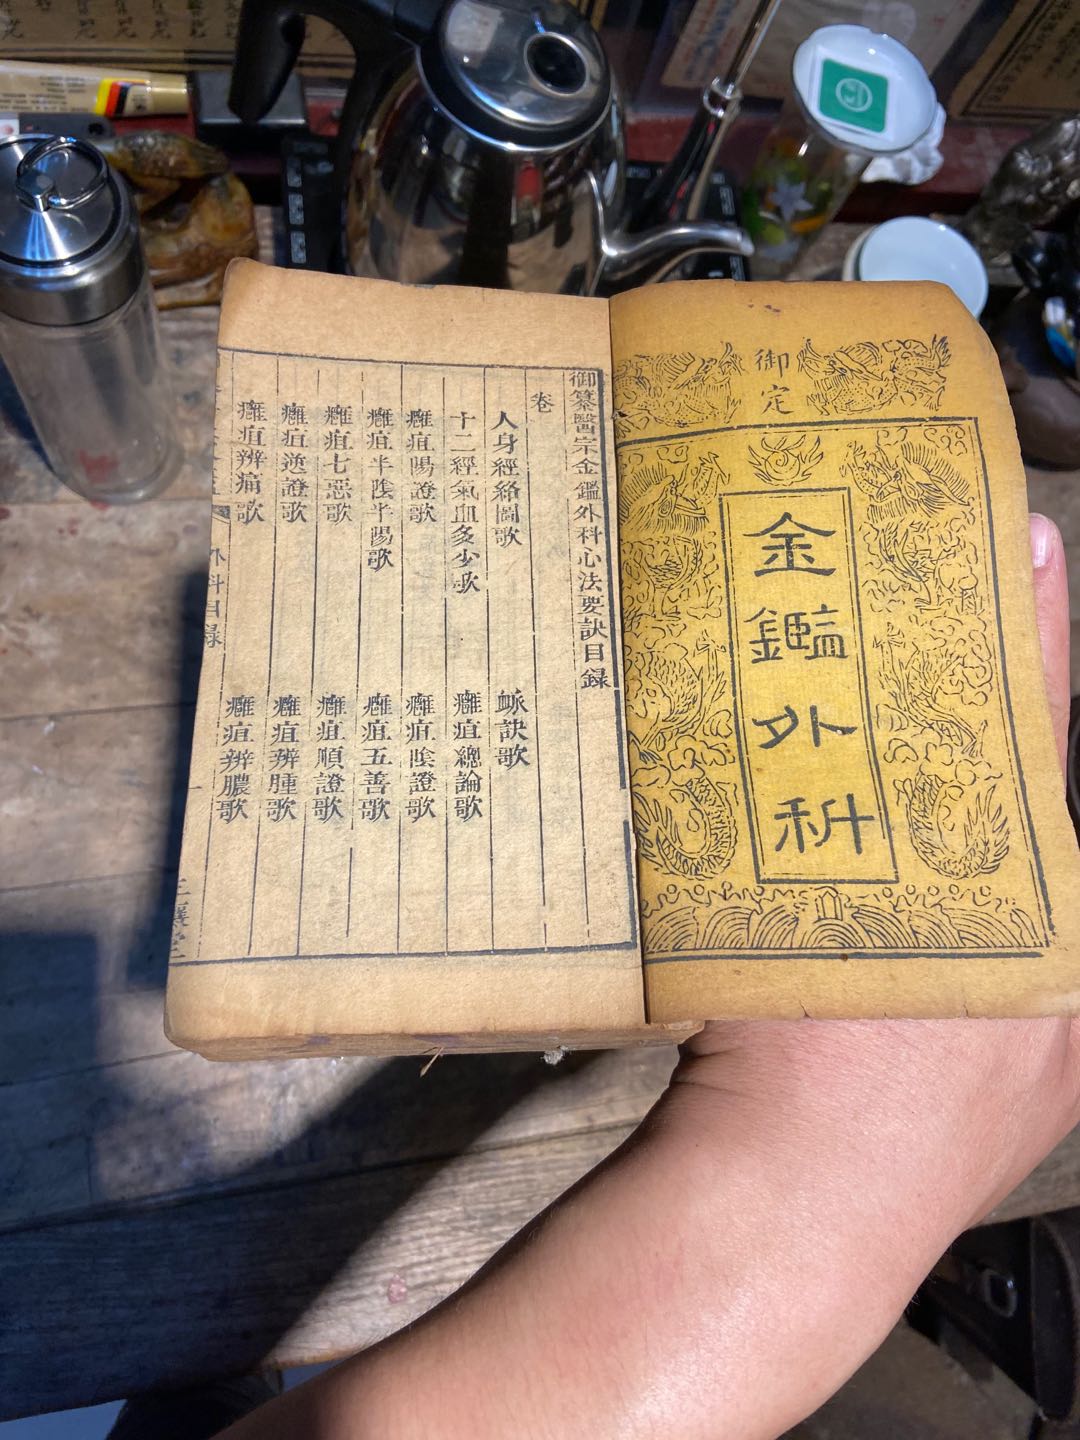 御定
金鑑外科
御纂醫宗金鑑外科心法要訣目録
卷
人身經絡圖歌
脉訣歌
十二經氣血多少歌
癰疽總論歌
癰疽陽證歌
癰疽陰證歌
癰疽半陰半陽歌
癰疽五善歌
癰疽七惡歌
癰疽順證歌
癰疽逆證歌
癰疽辨腫歌
癰疽辨痛歌
癰疽辨膿歌
外科目録
一